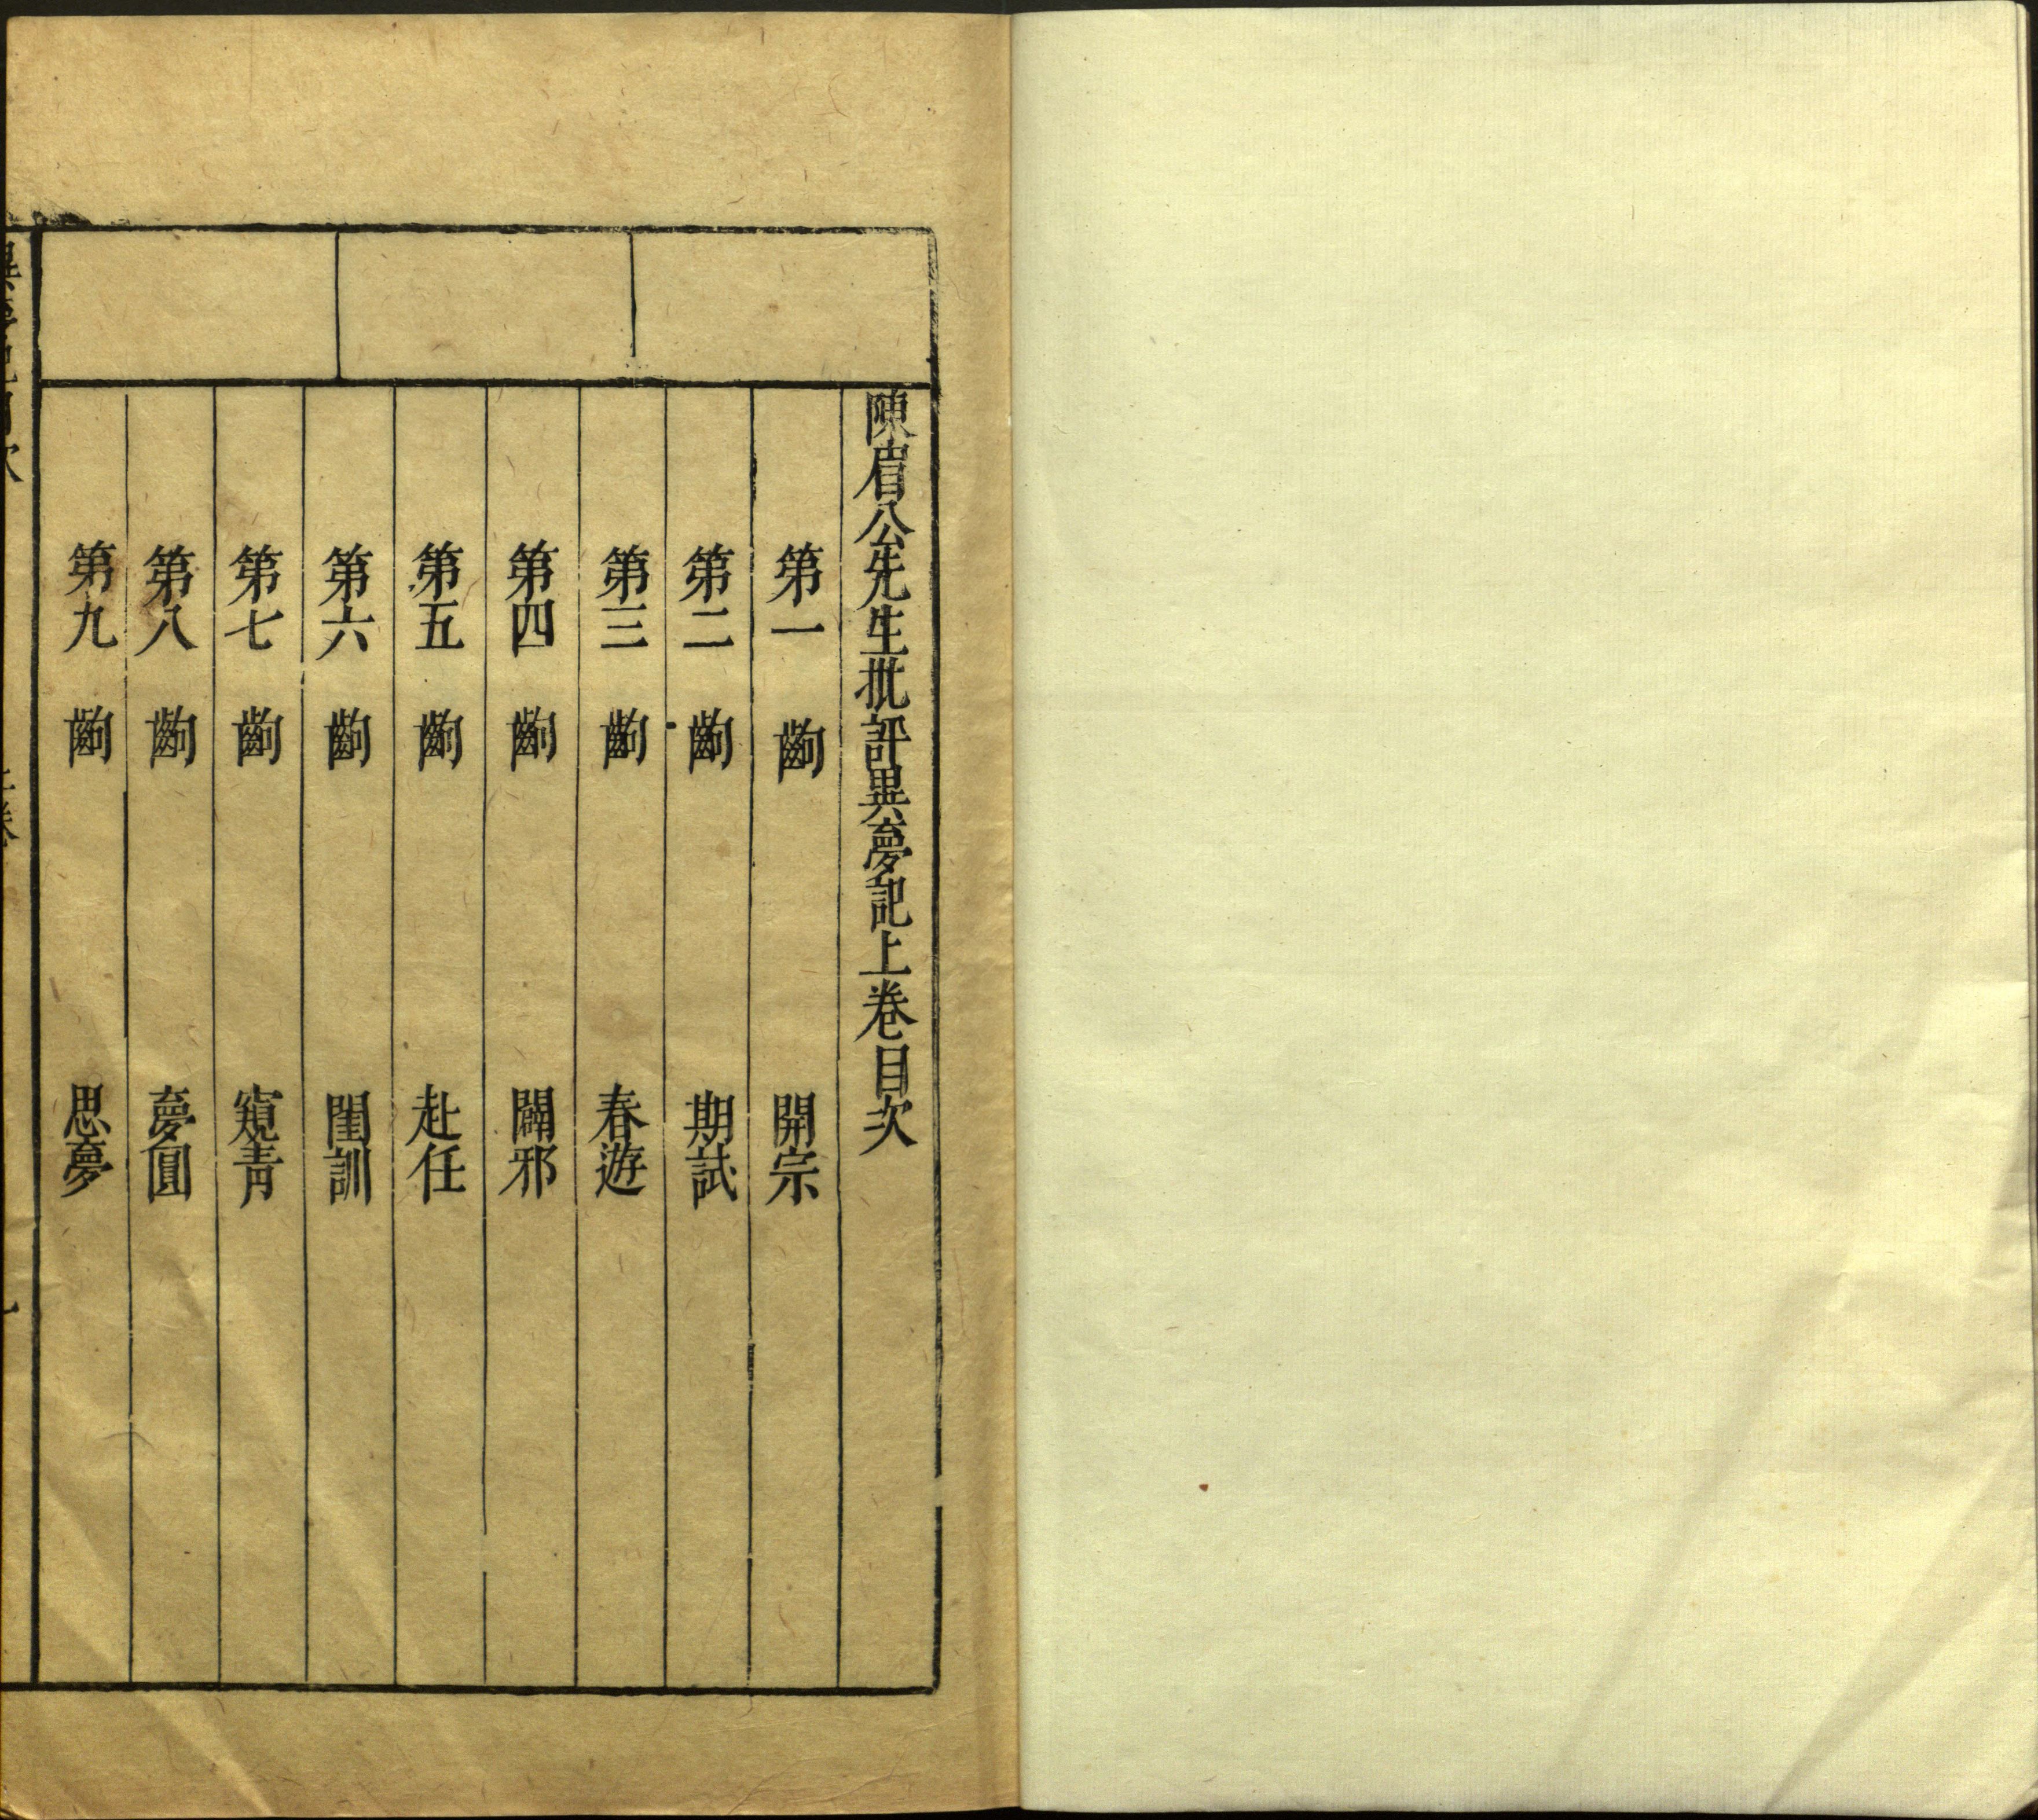 陳眉公先生批評異夢記上卷目次
第一齣 開宗
第二齣 期試
第三齣 春遊
第四齣 闢邪
第五齣 赴任
第六齣 閨訓
第七齣 窺青
第八齣 夢圓
第九齣 思夢